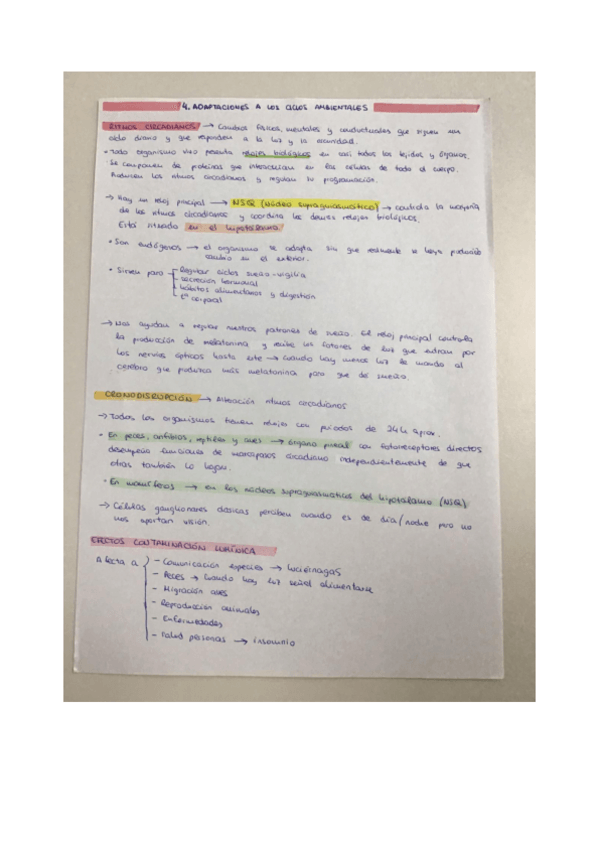 4. ADAPTACIONES A LOS CICLOS AMBIENTALES
RITMOS CIRCADIANOS → Cambios físicos, mentales y conductuales que siguen un
ciclo diario y que responden a la luz y la oscuridad.
• Todo organismo vivo presenta relojes biológicos en casi todos los tejidos y órganos.
Se componen de proteínas que interactúan en las células de todo el cuerpo.
Producen los ritmos circadianos y regulan su programación.
→ Hay un reloj principal → NSQ (Núcleo supraquiasmático) → controla la mayoría
de los ritmos circadianos y coordina los demás relojes biológicos.
Está situado en el hipotálamo.
• Son endógenos → el organismo se adapta sin que realmente se haya producido
cambio en el exterior.
• Sirven para - Regular ciclos sueño-vigilia
- secreción hormonal
- hábitos alimentarios y digestión
- tª corporal
→ Nos ayudan a regular nuestros patrones de sueño. El reloj principal controla
la producción de melatonina y recibe los fotones de luz que entran por
los nervios ópticos hasta este → cuando hay menos luz se manda al
cerebro que produzca más melatonina para que dé sueño.
CRONODISRUPCIÓN → Alteración ritmos circadianos
→ Todos los organismos tienen relojes con periodos de 24h aprox.
• En peces, anfibios, reptiles y aves → órgano pineal con fotorreceptores directos
desempeña funciones de marcapasos circadiano independientemente de que
otras también lo hagan.
• En mamíferos → en los núcleos supraquiasmáticos del hipotálamo (NSQ)
→ Células ganglionares clásicas perciben cuando es de día/noche pero no
nos aportan visión.
EFECTOS CONTAMINACIÓN LUMÍNICA
Afecta a - Comunicación especies → luciérnagas
- Peces → cuando hay luz señal alimentarse
- Migración aves
- Reproducción animales
- Enfermedades
- Salud personas → insomnio